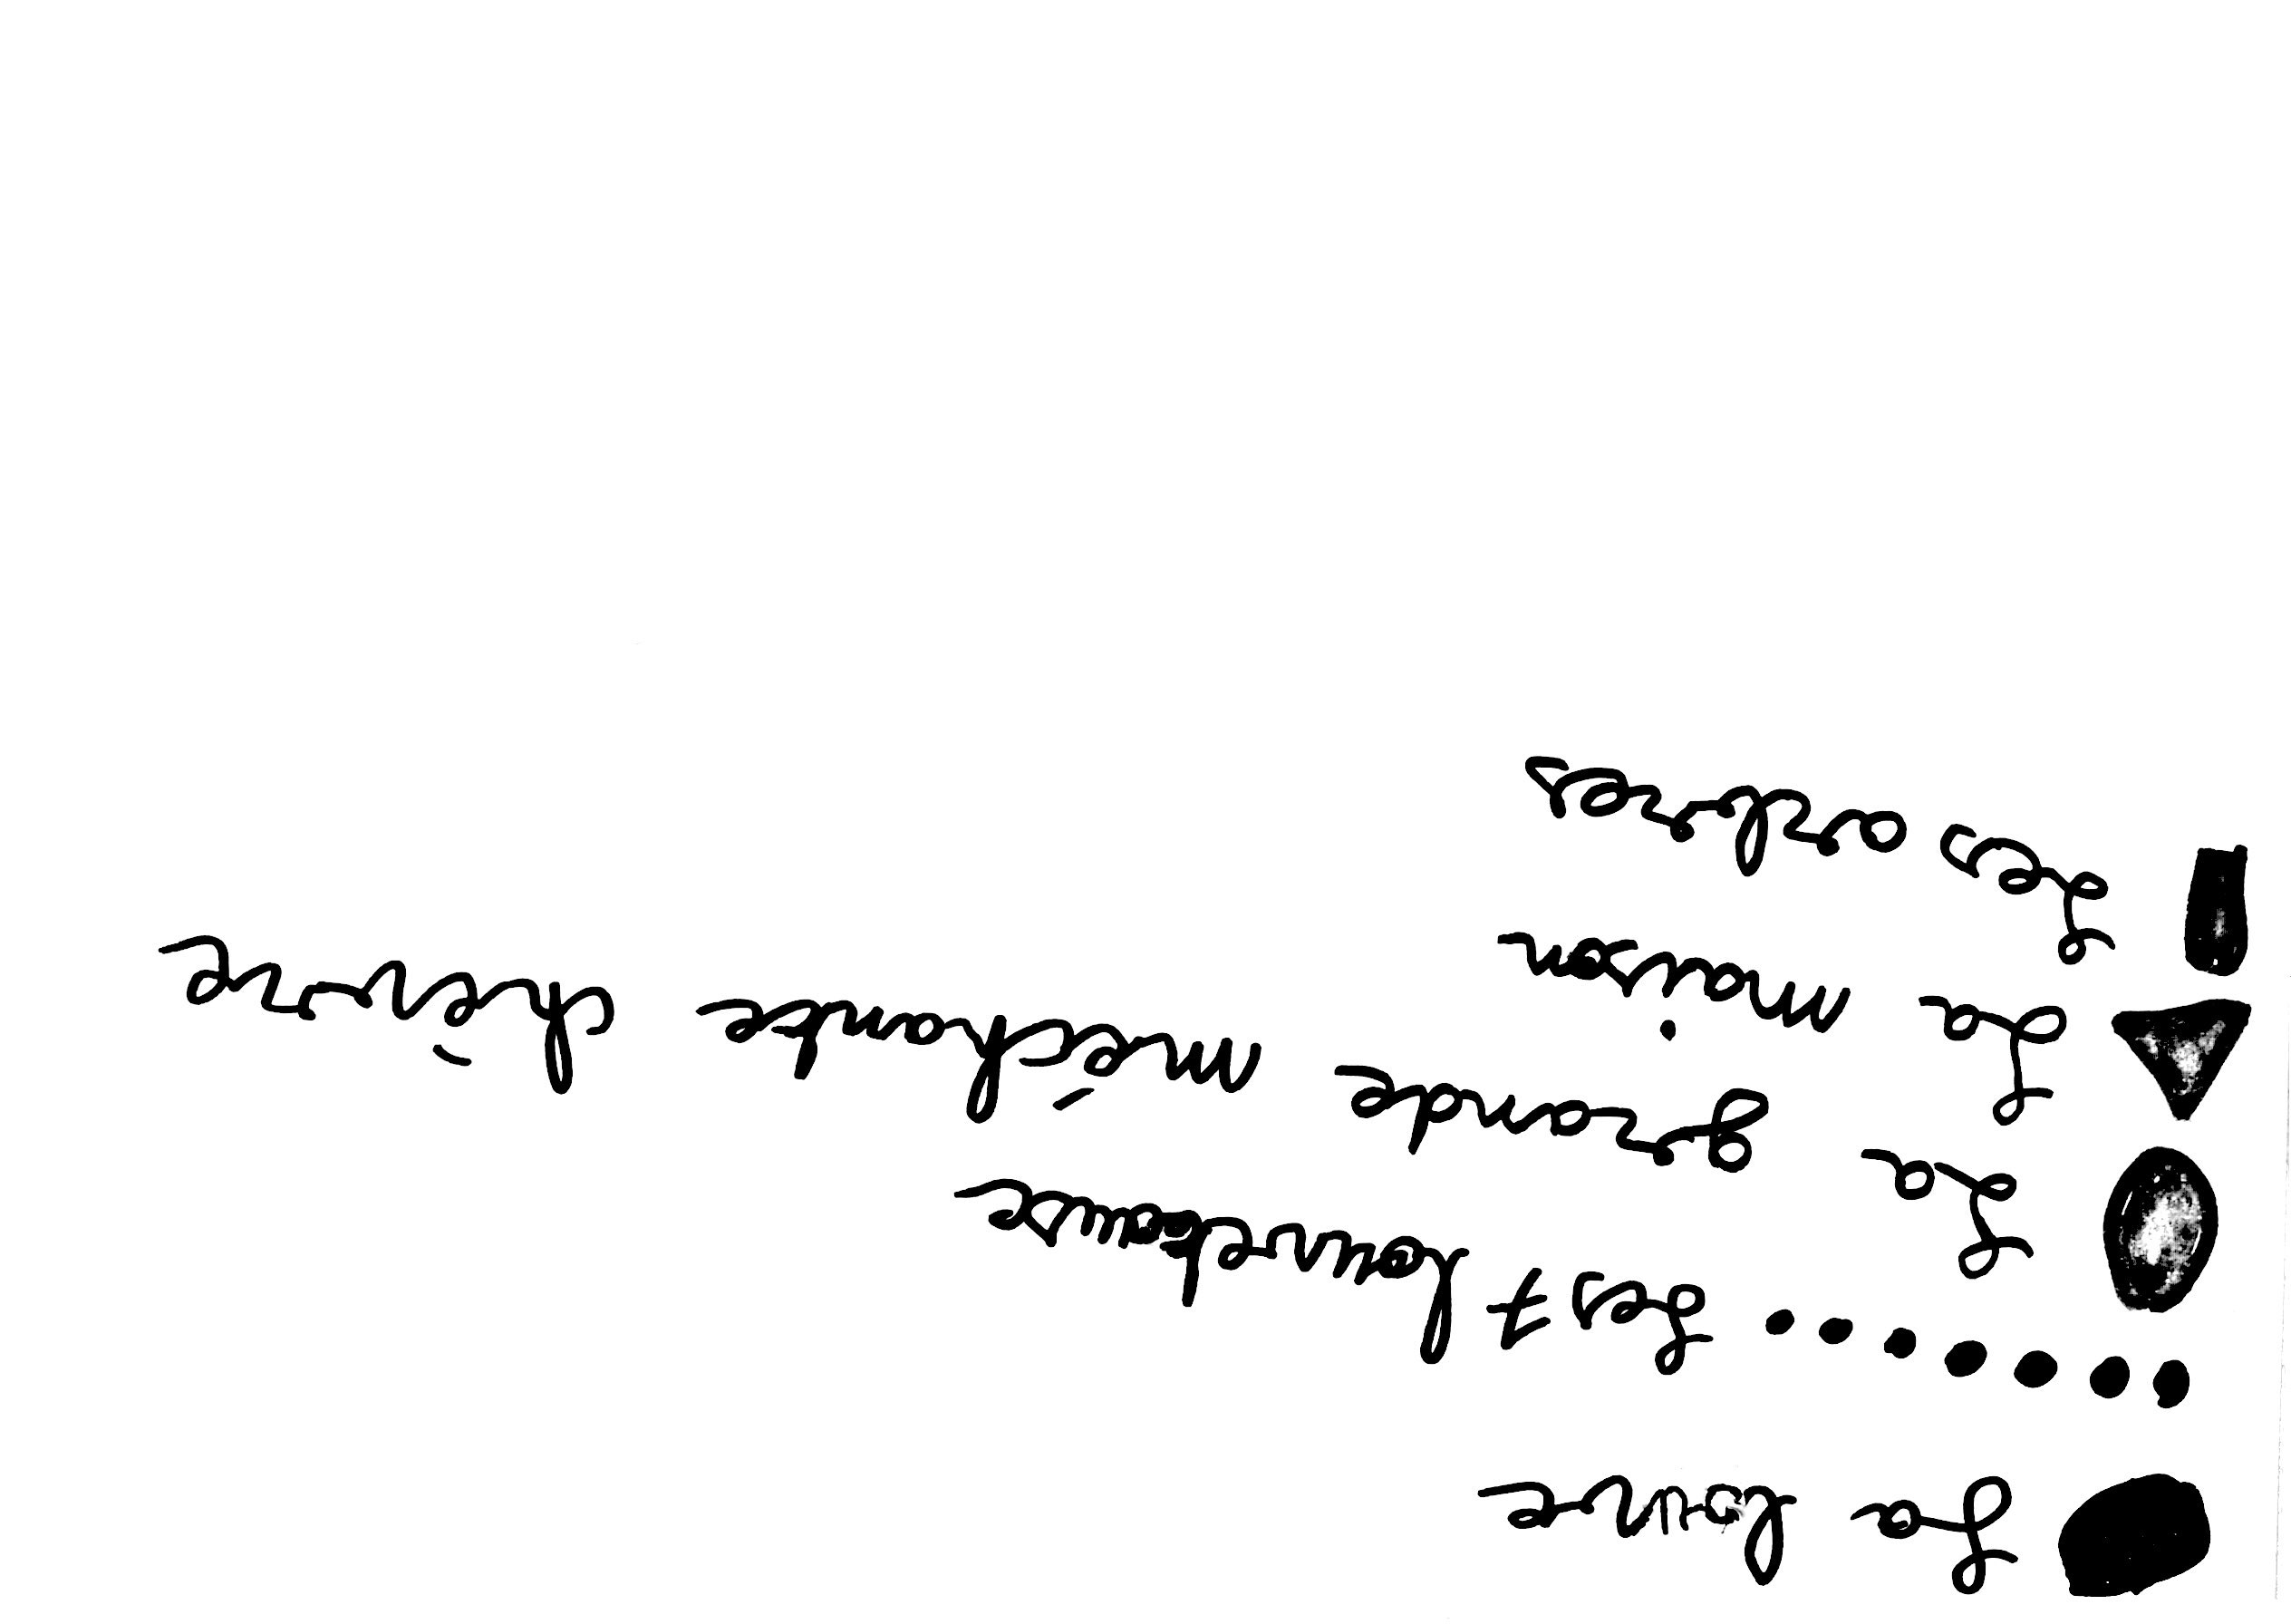 La louve
....... Les 7 louveteaux
La grande méchante chèvre
La maison
Les arbres